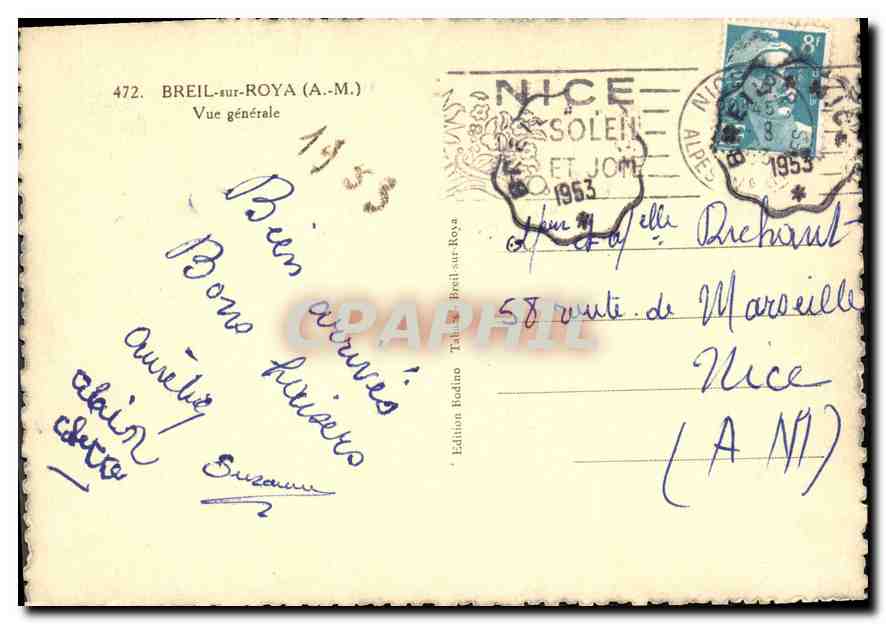 472. BREIL-sur-ROYA (A.-M.)
Vue générale
1953
Bien arrivés
Bons baisers
Aurélie
Alain
Colette
Suzanne
Edition Bodino Tabacs - Breil-sur-Roya
NICE
SOLEIL
ET JOIE
1953
8F
NICE
ALPES
1953
Mr et Melle
58 route de Marseille
Nice
(AM)
CPAPHIL